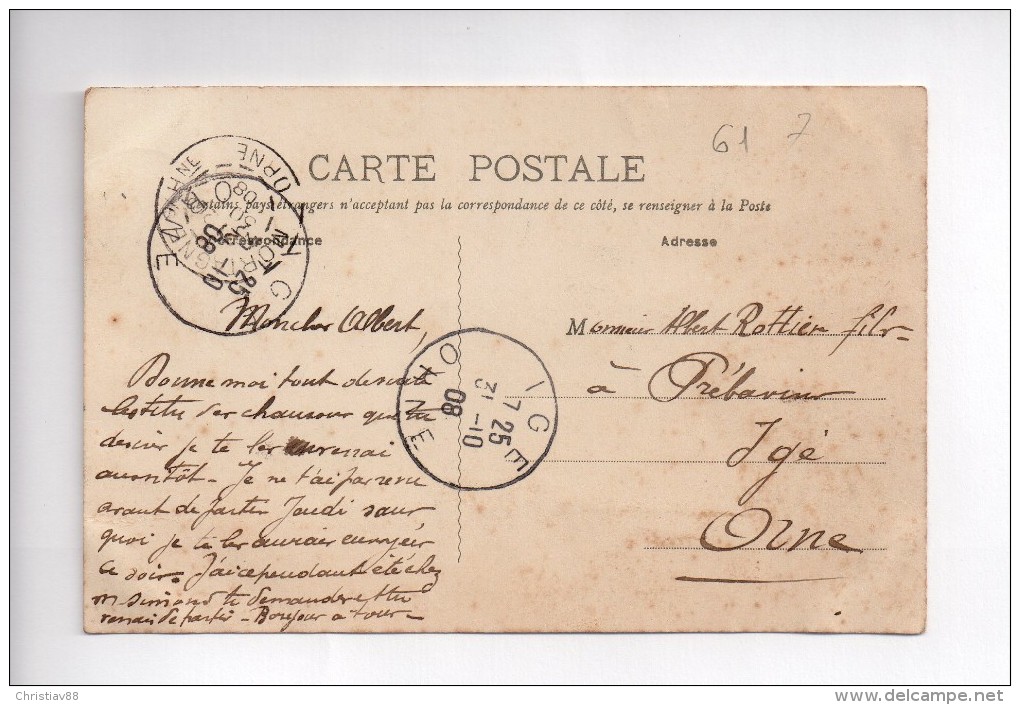 61 7
CARTE POSTALE
Certains pays étrangers n'acceptant pas la correspondance de ce côté, se renseigner à la Poste
Correspondance
Adresse
MORTAGNE
ORNE
30
08
25
08
Mon cher Albert,
Donne moi tout de suite
les titu des chaussur que tu
desires je te les enverrai
aussitôt - Je ne t'ai pas revu
avant de partir Jeudi sans
quoi je te les aurais envoyér
ce soir. J'ai cependant été chez
m Simond te demander et tu
venais de partir - Bonjour a tous -
IGÉ
7 25
31-10
08
ORNE
Monsieur Albert Rottier fils -
à Prébavin
Igé
Orne
Christiav88
www.delcampe.net